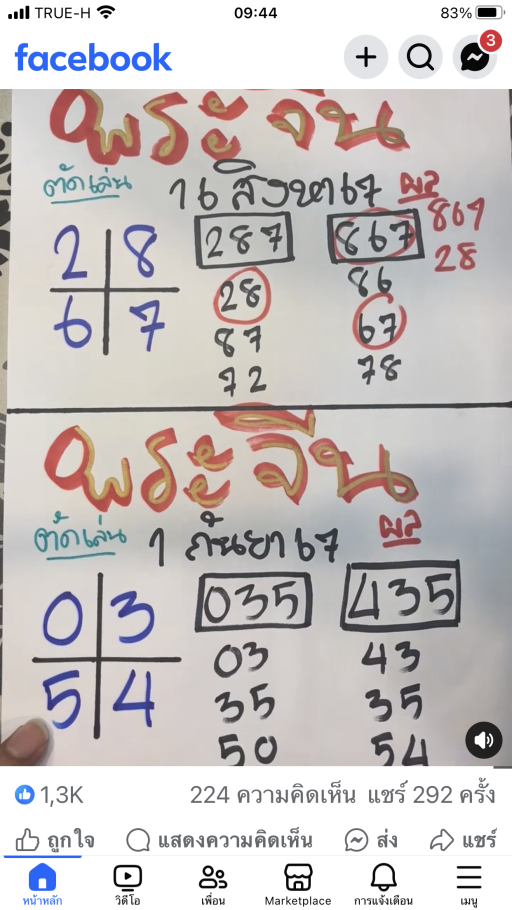 TRUE-H 09:44 83%
facebook 3
พระจีน
ตัดเล่น 16 สิงหา 67 ผล
867
28
2 8 287 867
6 7 28 86
87 67
72 78
พระจีน
ตัดเล่น 1 กันยา 67 ผล
0 3 035 435
5 4 03 43
35 35
50 54
1,3K 224 ความคิดเห็น แชร์ 292 ครั้ง
ถูกใจ แสดงความคิดเห็น ส่ง แชร์
หน้าหลัก วิดีโอ เพื่อน Marketplace การแจ้งเตือน เมนู